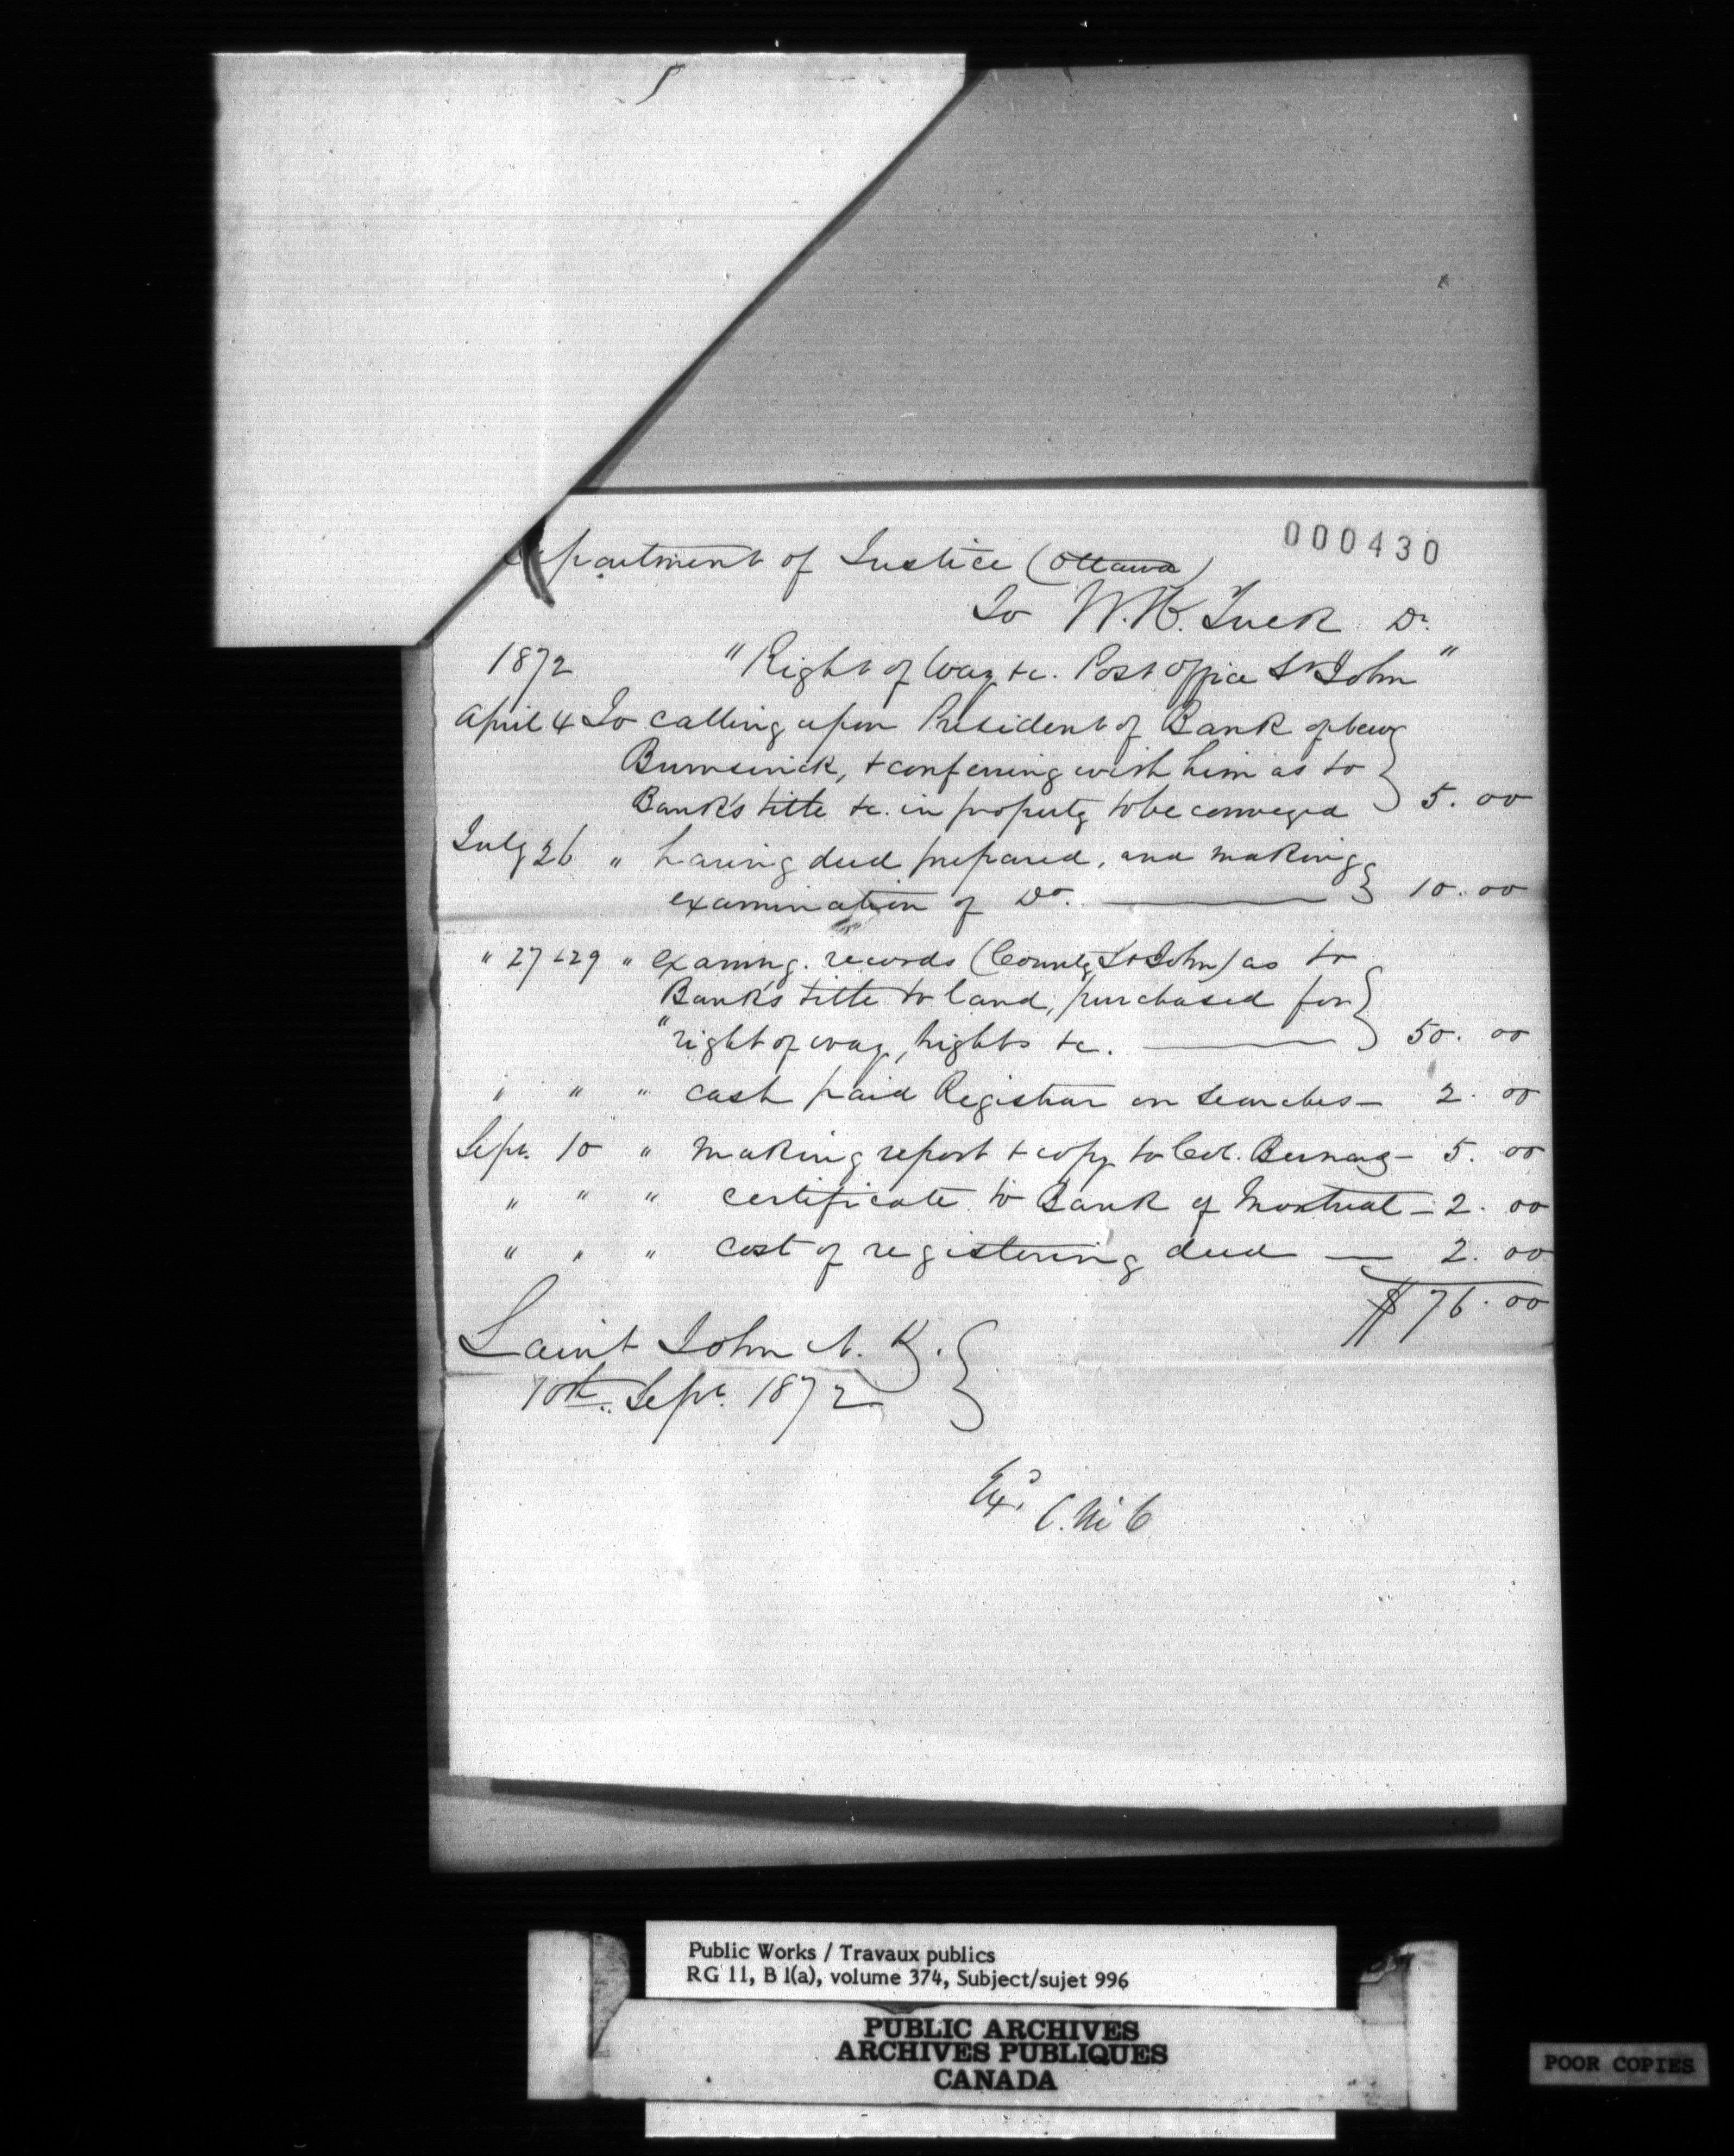 000430
Department of Justice (Ottawa)
To W.H. Tuck Dr.
1872 "Right of Way &c. Post Office St John"
April 4 To calling upon President of Bank of New
Brunswick, & conferring with him as to
Bank's title &c. in property to be conveyed } 5.00
July 26 " having deed prepared, and making
examination of Do. } 10.00
" 27 & 29 " examng. records (County St John) as to
Bank's title to land, purchased for
"right of way, lights &c. } 50.00
" " " cash paid Registrar on searches - 2.00
Sept. 10 " making report & copy to Col. Bernard - 5.00
" " " certificate to Bank of Montreal - 2.00
" " " cost of registering deed - 2.00
$76.00
Saint John N.B. }
10th. Sept. 1872
Public Works / Travaux publics
RG 11, B 1(a), volume 374, Subject/sujet 996
PUBLIC ARCHIVES
ARCHIVES PUBLIQUES
CANADA
POOR COPIES